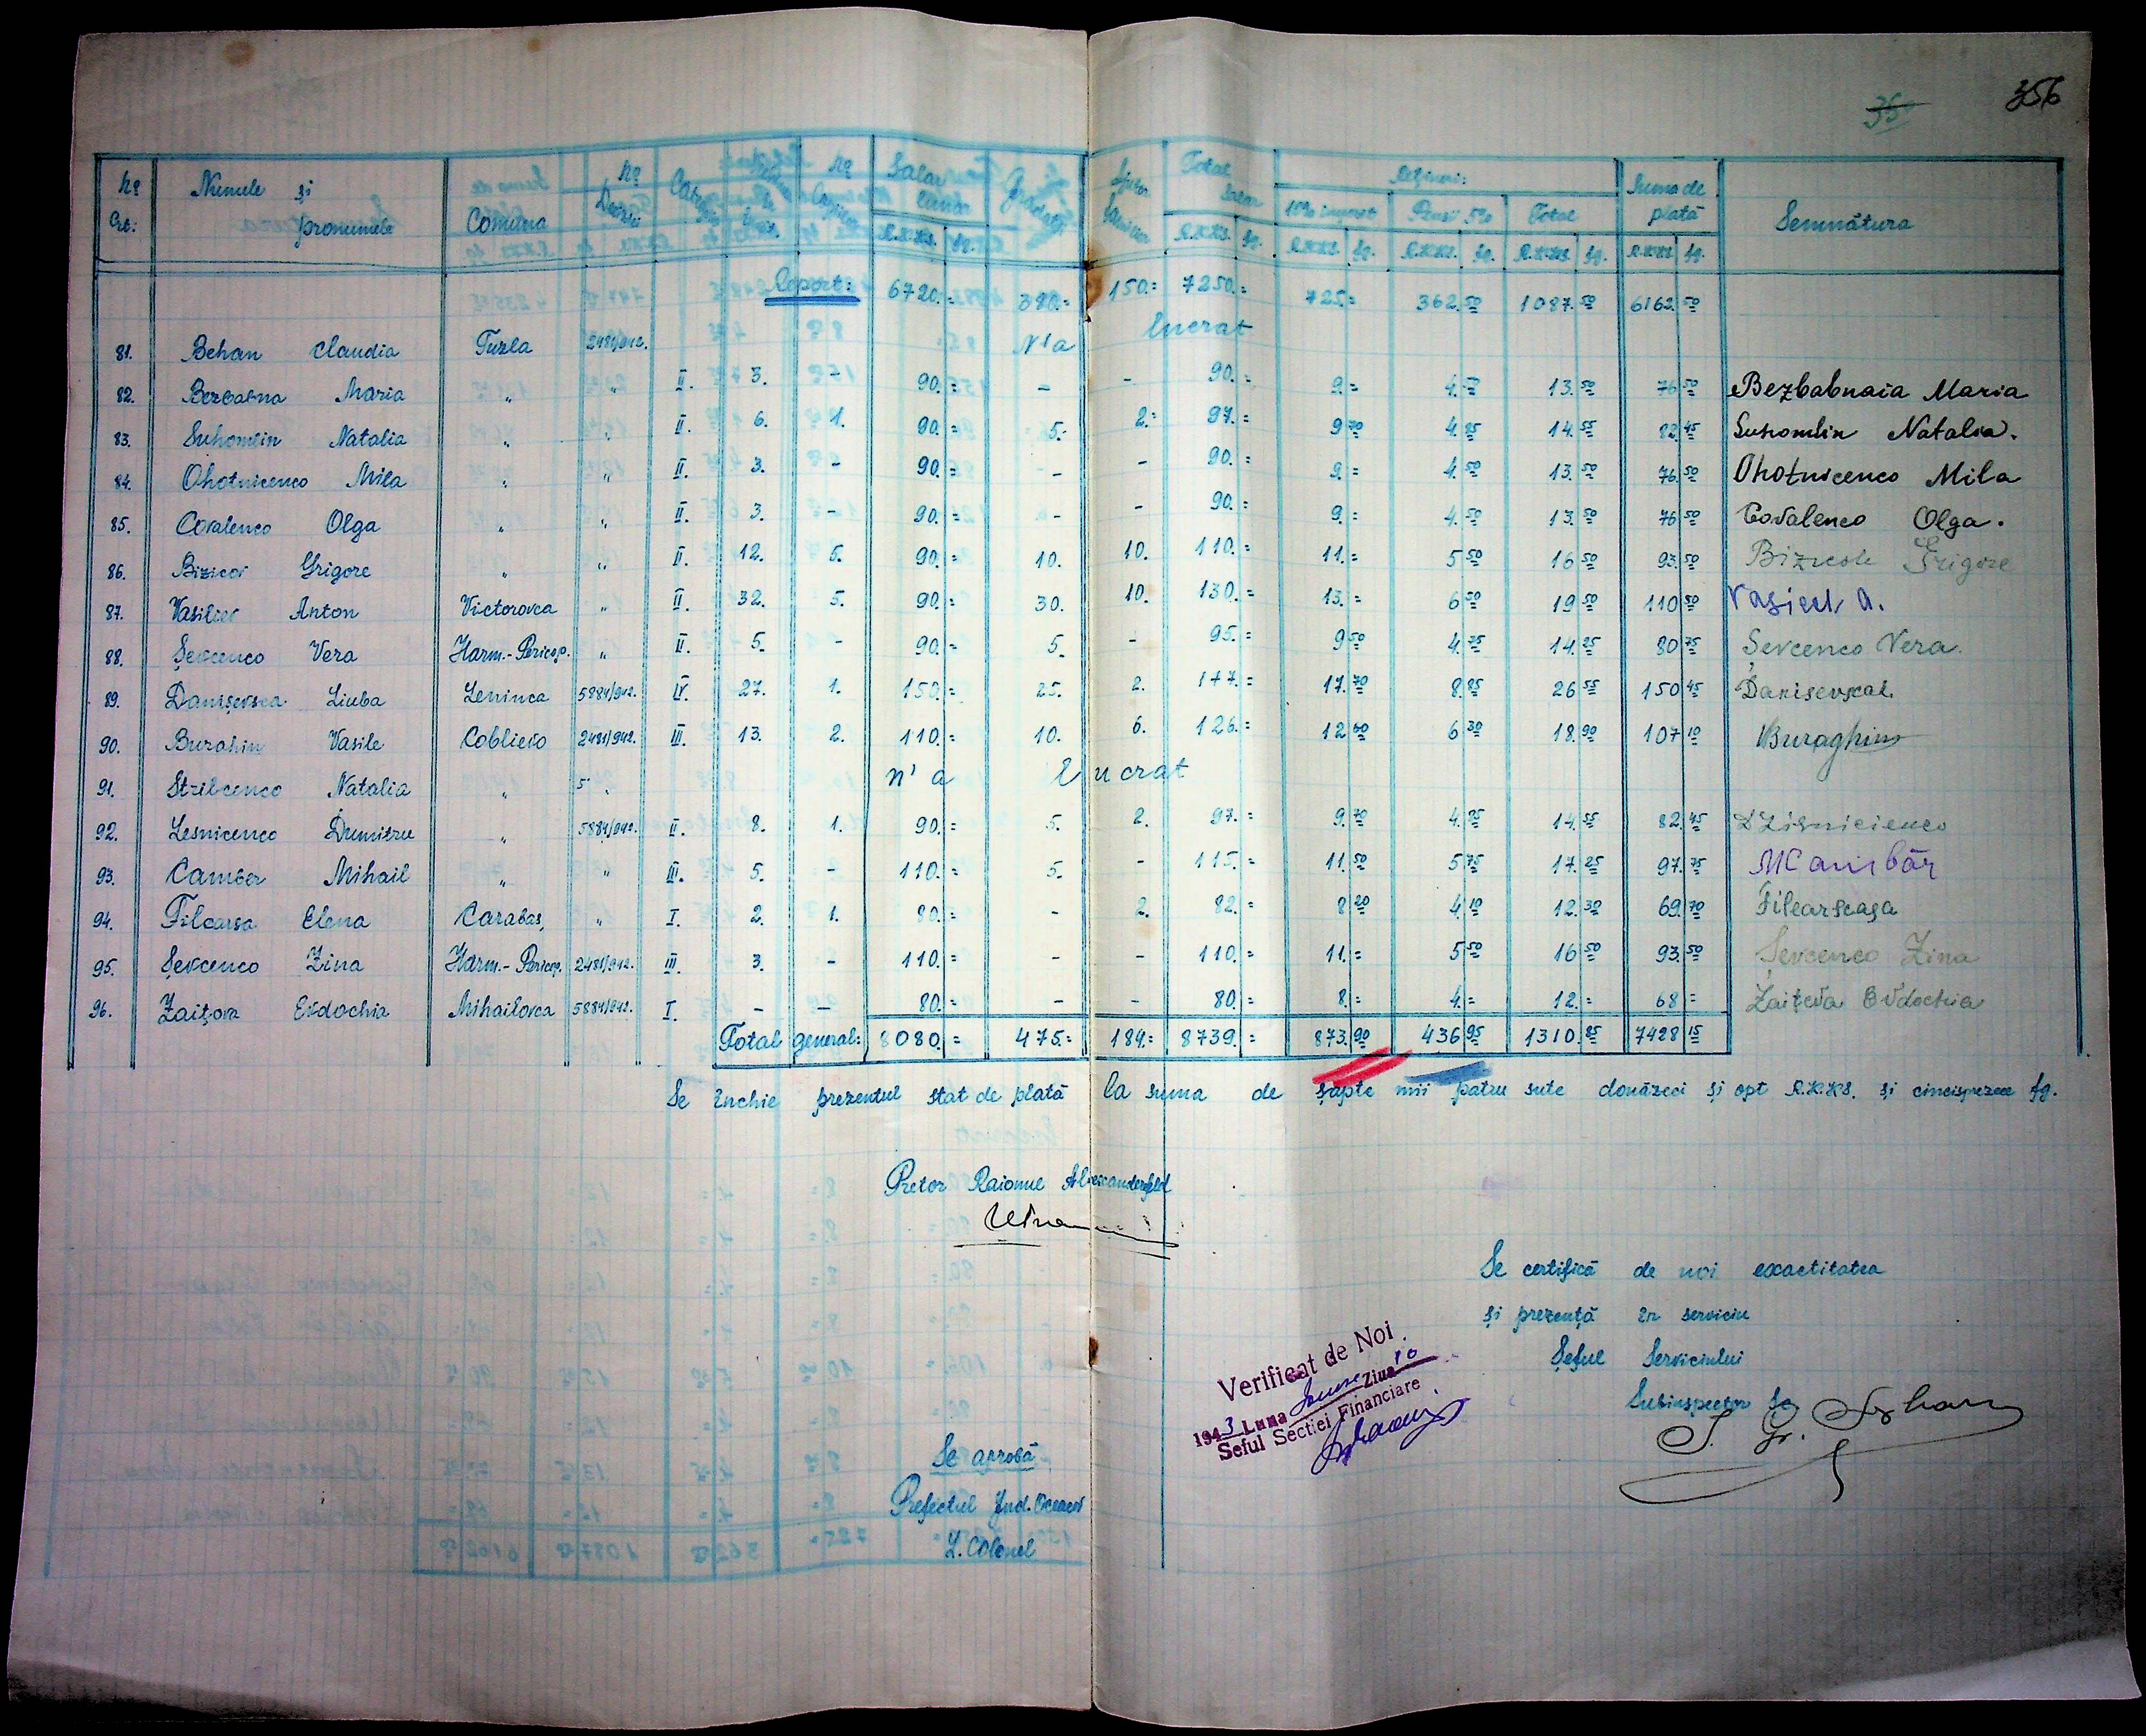 356
35
No Crt: Numele și pronumele Comuna No Deciziei Categ. No Copii Salar lunar Gradații Ajutor familiar Total salar Rețineri: Suma de plată Semnătura
10% impozit Pensii 5% Total
R.K.K.S. fg. R.K.K.S. fg. R.K.K.S. fg. R.K.K.S. fg. R.K.K.S. fg. R.K.K.S. fg.
Report: 6720.= 380.= 150.= 7250.= 725.= 362.50 1087.50 6162.50
81. Behan Claudia Tuzla 2481/942. N'a lucrat
82. Bezbabna Maria " " II. 3. - 90.= - - 90.= 9.= 4.50 13.50 76.50 Bezbabnaia Maria
83. Suhomlin Natalia " " II. 6. 1. 90.= 5.- 2.= 97.= 9.70 4.85 14.55 82.45 Suhomlin Natalia.
84. Ohotnicenco Mila " " II. 3. - 90.= - - 90.= 9.= 4.50 13.50 76.50 Ohotnicenco Mila
85. Covalenco Olga " " II. 3. - 90.= - - 90.= 9.= 4.50 13.50 76.50 Covalenco Olga.
86. Bizicoi Grigore " " II. 12. 5. 90.= 10. 10. 110.= 11.= 5.50 16.50 93.50 Grigore
87. Vasiliev Anton Victorovca " II. 32. 5. 90.= 30. 10. 130.= 13.= 6.50 19.50 110.50 A.
88. Șevcenco Vera Harm.-Pericop. " II. 5. - 90.= 5. - 95.= 9.50 4.75 14.25 80.75 Șevcenco Vera.
89. Danișevsca Liuba Leninca 5884/942. IV. 27. 1. 150.= 25. 2. 177.= 17.70 8.85 26.55 150.45
90. Burahin Vasile Coblievo 2481/942. III. 13. 2. 110.= 10. 6. 126.= 12.60 6.30 18.90 107.10 Buraghin
91. Strilcenco Natalia " 5 " n'a lucrat
92. Lesnicenco Dumitru " 5884/942. II. 8. 1. 90.= 5. 2. 97.= 9.70 4.85 14.55 82.45
93. Camber Mihail " " III. 5. - 110.= 5. - 115.= 11.50 5.75 17.25 97.75 M Cambăr
94. Filcarsa Elena Carabaș, " I. 2. 1. 80.= - 2. 82.= 8.20 4.10 12.30 69.70
95. Șevcenco Zina Harm.-Pericop. 2481/942. III. 3. - 110.= - - 110.= 11.= 5.50 16.50 93.50 Șevcenco Zina
96. Zaițova Evdochia Mihailovca 5884/942. I. - - 80.= - - 80.= 8.= 4.= 12.= 68.= Zaițeva Evdochia
Total general: 8080.= 475.= 184.= 8739.= 873.90 436.95 1310.85 7428.15
Se închie prezentul stat de plată la suma de șapte mii patru sute douăzeci și opt R.K.K.S. și cincisprezece fg.
Pretor Raionul Alexanderfeld
Se certifică de noi exactitatea
și prezență în serviciu
Șeful Serviciului
Subinspector
Verificat de Noi.
1943 Luna Iunie Ziua 10
Seful Sectiei Financiare
Se aprobă
Prefectul Jud. Oceacov
L. Colonel